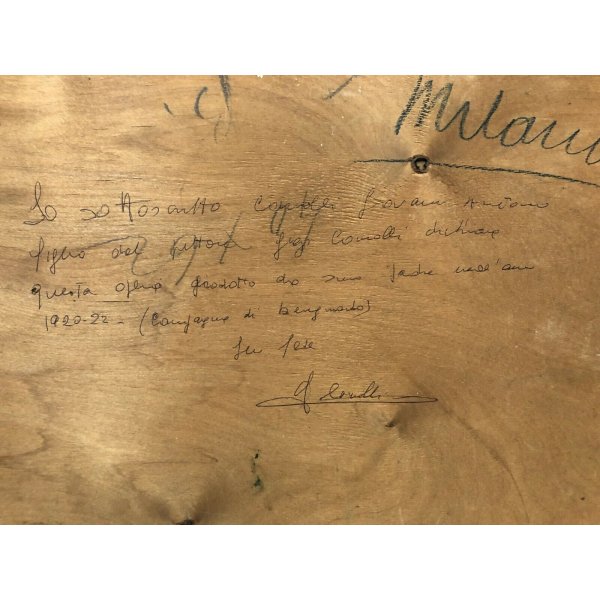 Milano
Io sottoscritto Comolli Giovanni Antonio
figlio del Pittore Gigi Comolli dichiaro
questa opera prodotta da mio padre nell'anno
1920-22 - (Campagna di
In fede
Comolli